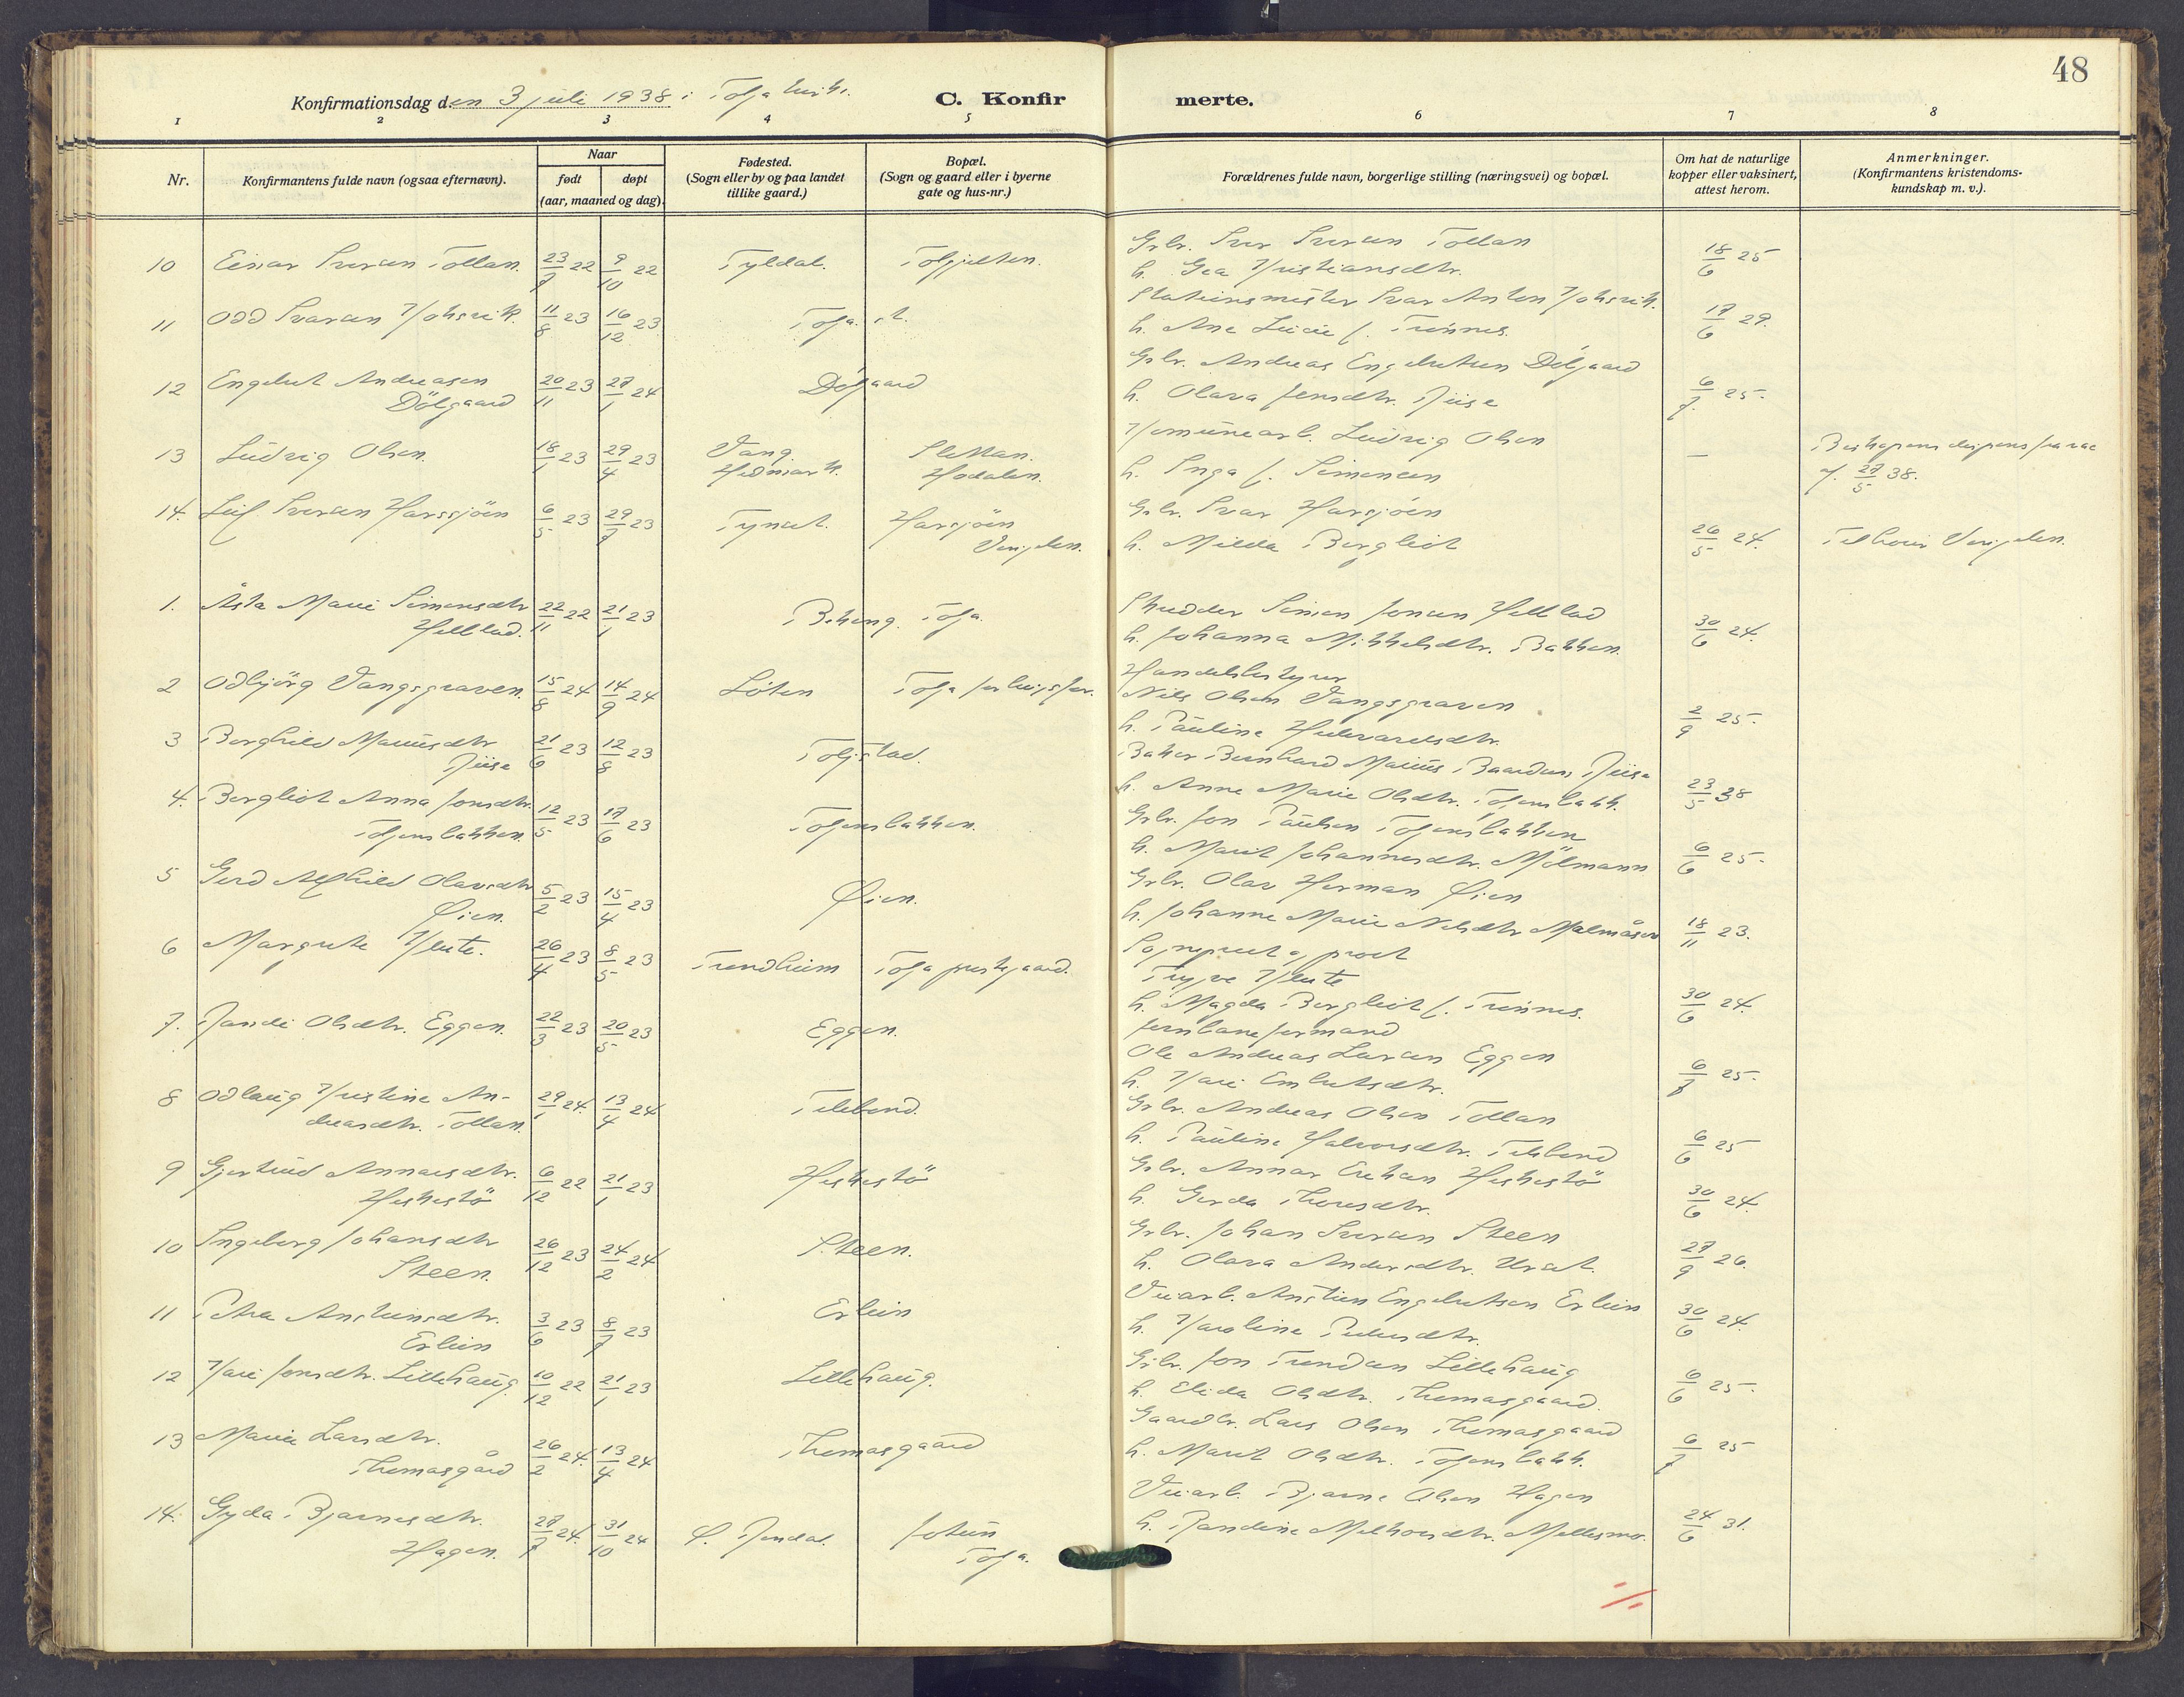 48
Konfirmationsdag den 3 juli 1938 i Tolga
C. Konfirmerte.
1 2 3 4 5 6 7 8
Nr.
Konfirmantens fulde navn (ogsaa efternavn).
Naar
født
døpt
(aar, maaned og dag).
Fødested.
(Sogn eller by og paa landet
tillike gaard.)
Bopæl.
(Sogn og gaard eller i byerne
gate og hus-nr.)
Forældrenes fulde navn, borgerlige stilling (næringsvei) og bopæl.
Om hat de naturlige
kopper eller vaksinert,
attest herom.
Anmerkninger.
(Konfirmantens kristendoms-
kundskap m. v.).
10 Einar Iversen Tollan. 23/7 22 9/10 22 Tyldal.
Grbr. Iver Iversen Tollan
h. Gea Kristiansdtr. 18/6 25
11 Odd Ivarsen 11/8 23 16/12 23 Tolga st.
Stationsmester Ivar Anton
h. Ane Lucie f. Trønnes. 17/6 29.
12 Engebret Andreasen
Dölgaard 20/11 23 27/1 24 Dølgaard
Grbr. Andreas Engebretsen Dølgaard
h. Olava Jensdtr. Riise 6/7 25.
13 Ludvig Olsen. 18/1 23 29/4 23 Vang
Hedmark.
Sletten.
Hodalen.
Kommunearb. Ludvig Olsen
h. Inga f. Simensen —
Biskopens dispens
af 27/5 38.
14. Leif Iversen Harsjöen 6/5 23 29/7 23 Tynset. Harsjöen
Vingelen.
Grbr. Ivar Harsjöen
h. Milda Bergliot 26/5 24. Tilhører Vingelen.
1. Åsta Marie Simensdtr
22/11 22 21/1 23 Tolga.
Skredder Simen Jonsen
h. Johanna Mikkelsdtr. Bakken. 30/6 24.
2 Odbjörg Vangsgraven. 15/8 24 14/9 24 Løten
Handelsbestyrer
Nils Olsen Vangsgraven
h. Pauline 2/9 25.
3 Borghild Mariusdtr
Riise 21/6 23 12/8 23 Toljstad.
Baker Bernhard Marius Baardsen Riise
h. Anne Marie Olsdtr. Tolgensbakk. 23/5 38
4. Bergliot Anna Jonsdtr.
Tolgensbakken. 12/5 23 17/6 23 Tolgensbakken.
Grbr. Jon Paulsen Tolgensbakken
h. Marit Johannesdtr. Mölmann 6/6 25.
5 Gerd Alfhild Olavsdtr
Øien. 5/2 23 15/4 23 Øien.
Grbr. Olav Herman Øien
h. Johanne Marie Nilsdtr Malmåsen 18/11 23.
6 Margrete Klute. 26/4 23 8/5 23 Trondheim Tolga prestegaard.
Sogneprest og prost
Trygve Klute
h. Magda Bergliot f. Trønnes. 30/6 24.
7. Randi Olsdtr. Eggen. 22/3 23 20/5 23 Eggen.
Jernbaneformand
Ole Andreas Larsen Eggen
h. Kari Embretsdtr. 6/7 25.
8 Odlaug Kristine An-
dreasdtr. Tollan. 29/1 24. 13/4 24 Telebond.
Grbr. Andreas Olsen Tollan
h. Pauline Halvorsdtr. Telebond 6/6 25
9 Gjertrud Annarsdtr.
Heskestö 6/12 22 21/1 23 Heskestö
Grbr. Annar Ereksen Heskestö
h. Gerda Thoresdtr. 30/6 24.
10 Ingeborg Johansdtr
Steen. 26/12 23 24/2 24 Steen.
Grbr. Johan Iversen Steen
h. Olava Andersdtr. Urset. 27/9 26.
11 Petra Ansteinsdtr.
Erlien 3/6 23 8/7 23 Erlien
Veiarb. Anstein Engebretsen Erlien
h. Karoline Pedersdtr. 30/6 24.
12 Kari Jonsdtr. Lillehaug. 10/12 22 21/1 23 Lillehaug.
Grbr. Jon Trondsen Lillehaug
h. Elida Olsdtr. Thomasgaard. 6/6 25.
13 Marie Larsdtr.
Thomasgård 26/2 24. 13/4 24 Thomasgaard
Gaardbr. Lars Olsen Thomasgaard
h. Marit Olsdtr. Tolgensbakk. 6/7 25
14. Gyda Bjarnesdtr.
Hagen. 27/7 24. 31/10 24 Ø. Rendal. Jotun
Tolga.
Veiarb. Bjarne Olsen Hagen
h. Randine 24/6 31.